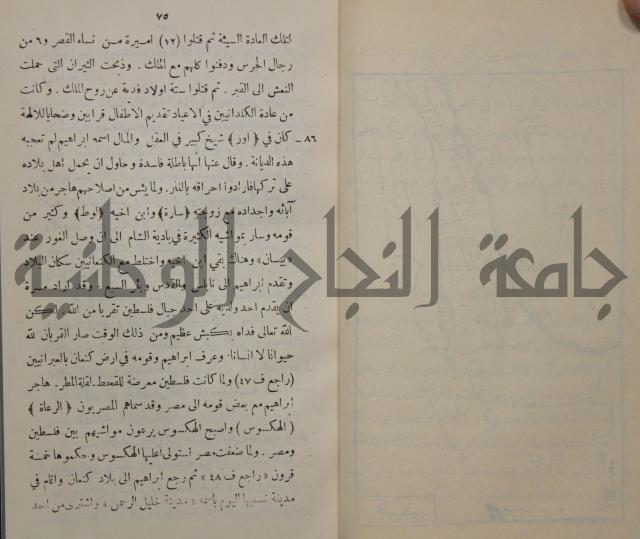 ٧٥
لتلك العادة السيئة تم قتلوا (١٢) اميرة مـن نساء القصر و٦ من
رجال الحرس ودفنوا كلهم مع الملك . وذبحت الثيران التي حملت
النعش الى القبر . تم قتلوا ستة اولاد فدية عن روح الملك . وكانت
من عادة الكلدانيين في الاعياد تقديم الاطفال قرابين وضحايا للآلهة
٨٦ ــ كان في ﴿ اور ﴾ شيخ كبير في العقل والمال اسمه ابراهيم لم تعجبه
هذه الديانة . وقال عنها انها باطلة فاسدة وحاول ان يحمل اهل بلاده
على تركها فارادوا احراقه بالنار . ولما يئس من اصلاحهم هاجر من بلاد
آبائه واجداده مع زوجته ﴿سارة﴾ وابن اخيه ﴿لوط﴾ وكثير من
قومه وسار بمواشيه الكثيرة في بادية الشام الى ان وصل الغور عند
«بيسان» وهناك بقي ابن اخيه واختلط مع الكنعانيين سكان البلاد
وتقدم ابراهيم الى نابلس والقدس وبئر السبع . وقد اراد مرة
ان يقدم احد ولديه على احد جبال فلسطين تقربا من الله. لكن
الله تعالى فداه بكبش عظيم ومن ذلك الوقت صار القربان لله
حيوانا لا انسانا. وعرف ابراهيم وقومه في ارض كنعان بالعبرانيين
(راجع ف ٤٧) ولما كانت فلسطين معرضة للقحط لقلة المطر. هاجر
ابراهيم مع بعض قومه الى مصر وقد سماهم المصريون ﴿ الرعاة ﴾
( الهكسوس ) واصبح الهكسوس يرعون مواشيهم بين فلسطين
ومصر . ولما ضعفت مصر استولى اعليها الهكسوس وحكموها خمسة
قرون «راجع ف ٤٨» تم رجع ابراهيم الى بلاد كنعان واقام في
مدينة نسميها اليوم باسمه « مدينة خليل الرحمن » واشترى من احد
جامعة النجاح الوطنية